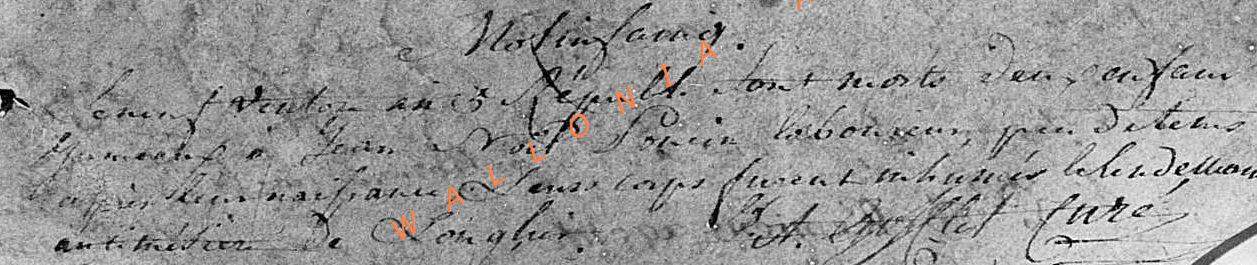 Le neuf ventose an 13 Republ. sont morts deux enfans
jumeaux à Jean Noël laboureur, peu de tems
après leur naissance Leurs corps furent inhumés le lendemain
au cimetière de Longlier. Curé
WALLONIA